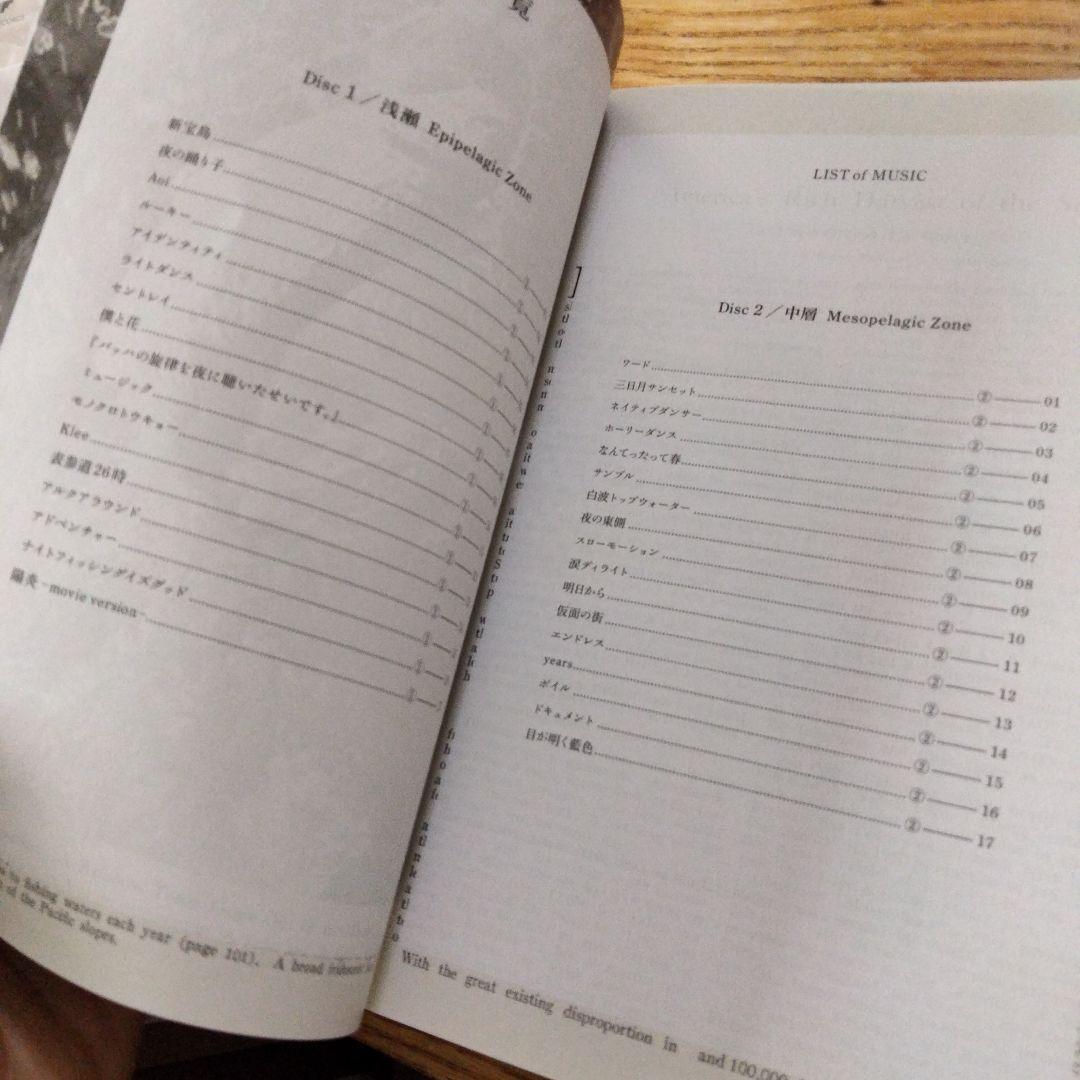 覧
Disc 1／浅瀬 Epipelagic Zone
新宝島
夜の踊り子
Aoi
ルーキー
アイデンティティ
ライトダンス
セントレイ
僕と花
『バッハの旋律を夜に聴いたせいです。』
ミュージック
モノクロトウキョー
Klee
表参道26時
アルクアラウンド
アドベンチャー
ナイトフィッシングイズグッド
陽炎 -movie version-
fishing waters each year (page 101). A broad
of the Pacific slopes.
LIST of MUSIC
Disc 2／中層 Mesopelagic Zone
ワード ② 01
三日月サンセット ② 02
ネイティブダンサー ② 03
ホーリーダンス ② 04
なんてったって春 ② 05
サンプル ② 06
白波トップウォーター ② 07
夜の東側 ② 08
スローモーション ② 09
涙ディライト ② 10
明日から ② 11
仮面の街 ② 12
エンドレス ② 13
years ② 14
ボイル ② 15
ドキュメント ② 16
目が明く藍色 ② 17
With the great existing disproportion in and 100,000